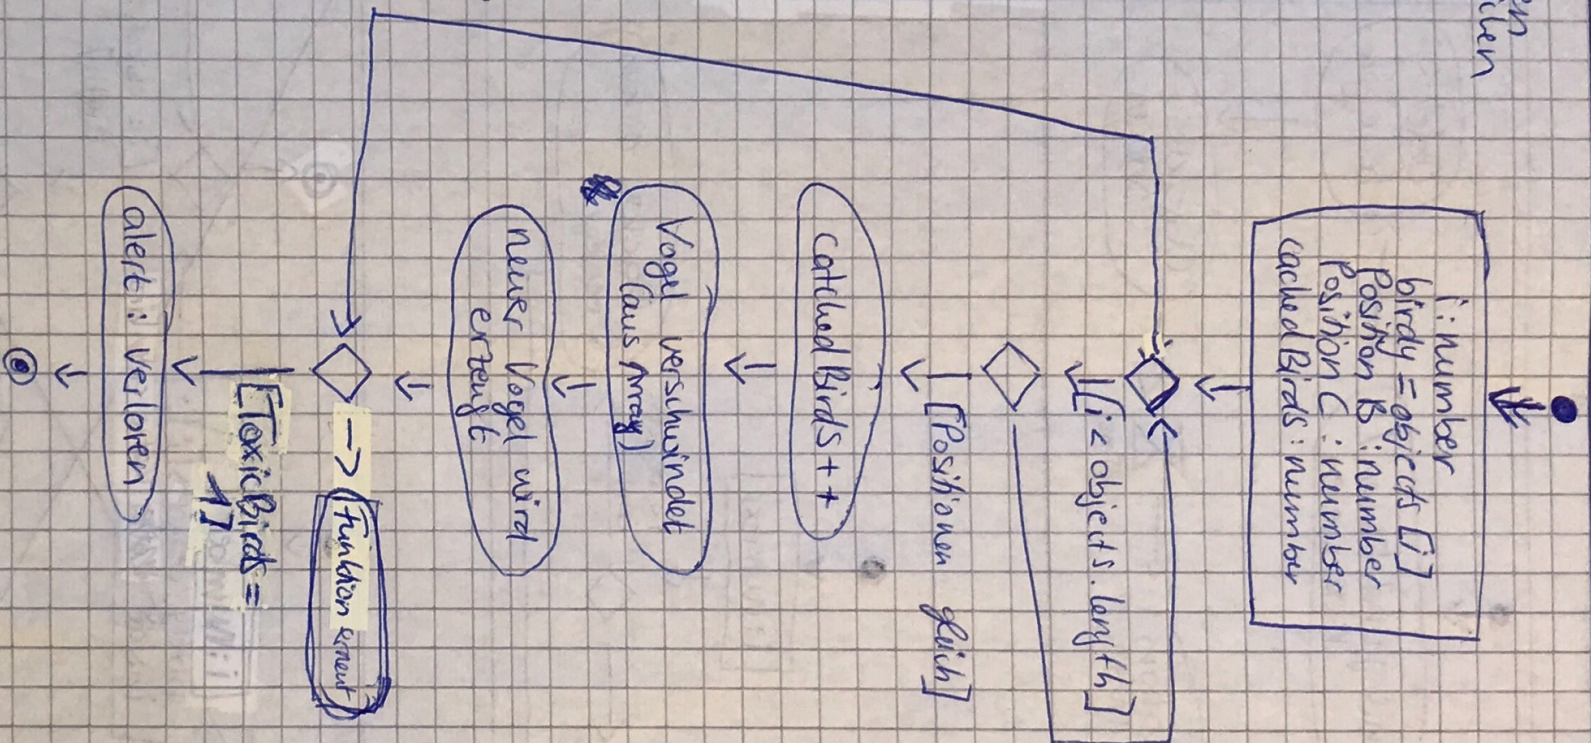 i : number
birdy = objects [i]
Position B : number
Position C : number
cachedBirds : number
[i < objects.length]
[Positionen gleich]
catchedBirds ++
Vogel verschwindet
(aus Array)
neuer Vogel wird
erzeugt
funktion erneut
[ToxicBirds =
1]
alert : verloren